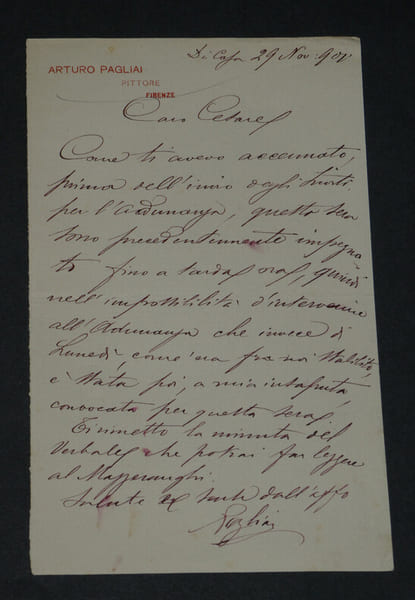 ARTURO PAGLIAI
PITTORE
FIRENZE
Di Casa 29 Nov. 901
Caro Cesare
Come ti avevo accennato,
prima dell'invio degli Inviti
per l'Adunanza, questa sera
sono precedentemente impegna-
to fino a tarda ora, quindi
nell'impossibilità d'intervenire
all'Adunanza che invece di
Lunedì, come era fra noi stabilito,
è stata poi, a mia insaputa,
convocata per questa sera.
Ti rimetto la minuta del
Verbale che potrai far leggere
al
Salute dall'affo
Pagliai